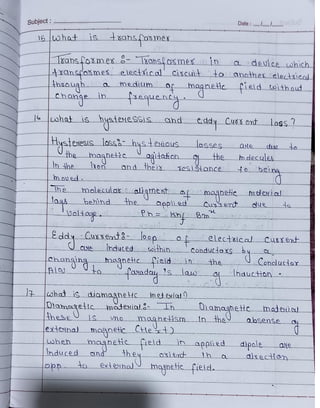 Subject :
Date : __/__/__
15 what is transformer
Transformer :- Transformer in a device which
transformes electrical circuit to another electrical
through a medium of magnetic field without
change in frequency.
16 what is hysteressis and eddy current loss?
Hysteresis loss:- hysterious losses are due to
the magnetic agitation of the molecules
In the Iron and their resistance to being
moved.
The molecular aligment of magnetic material
lags behind the applied current due to
voltage. Ph = Khf Bmˣ
Eddy Current:- loop of electrical current
are induced within conductors by a
changing magnetic field in the Conductor
to faraday's law of Induction.
17 what is diamagnetic meterial?
Diamagetic material:- In Diamagnetic material
there is no magnetism in the absense of
external magnetic
when magnetic field in applied dipole are
Induced and they orient in a direction
opp. to external magnetic field.